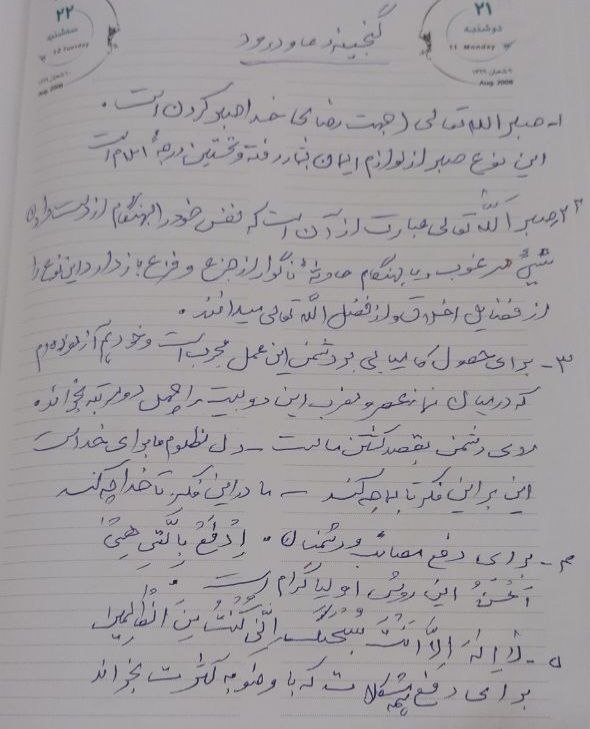 ۲۲
سه‌شنبه
12 Tuesday
Aug 2008
۲۱
دوشنبه
11 Monday
Aug 2008
گنجینه دعا و درود
۱- صبر الله تعالی (جهت رضای خدا صبر کردن است.
این نوع صبر از لوازم ایمان بشمار رفته و نخستین درجه اسلام است
۲- صبر الله تعالی عبارت از آن است که نفس خود را بهنگام از دست دادن
شیئی مرغوب و یا بهنگام حادثه ناگوار از جزع و فزع باز دارد این نوع را
از فضایل اخلاق و از فضل الله تعالی میدانند.
۳- برای حصول کامیابی بر دشمن این عمل مجرب است و خود هم آزموده‌ام
که در میان نماز عصر و مغرب این دو بیت را چهل مرتبه بخواند
ای دشمن بقصد کشتن ماست - دل مظلوم ما برای خداست
این بر این فکر تا بما چه کند - ما در این فکر تا خدا چه کند
۴- برای دفع مصائب و دشمنان. اِدْفَعْ بِالَّتِی هِیَ
اَحْسَنُ این روش اولیا کرام است.
۵- لا اِلهَ اِلّا اَنْتَ سُبْحنَکَ اِنّی کُنْتُ مِنَ الظّالِمینَ
برای دفع همه مشکلات که با وضو به کثرت بخواند